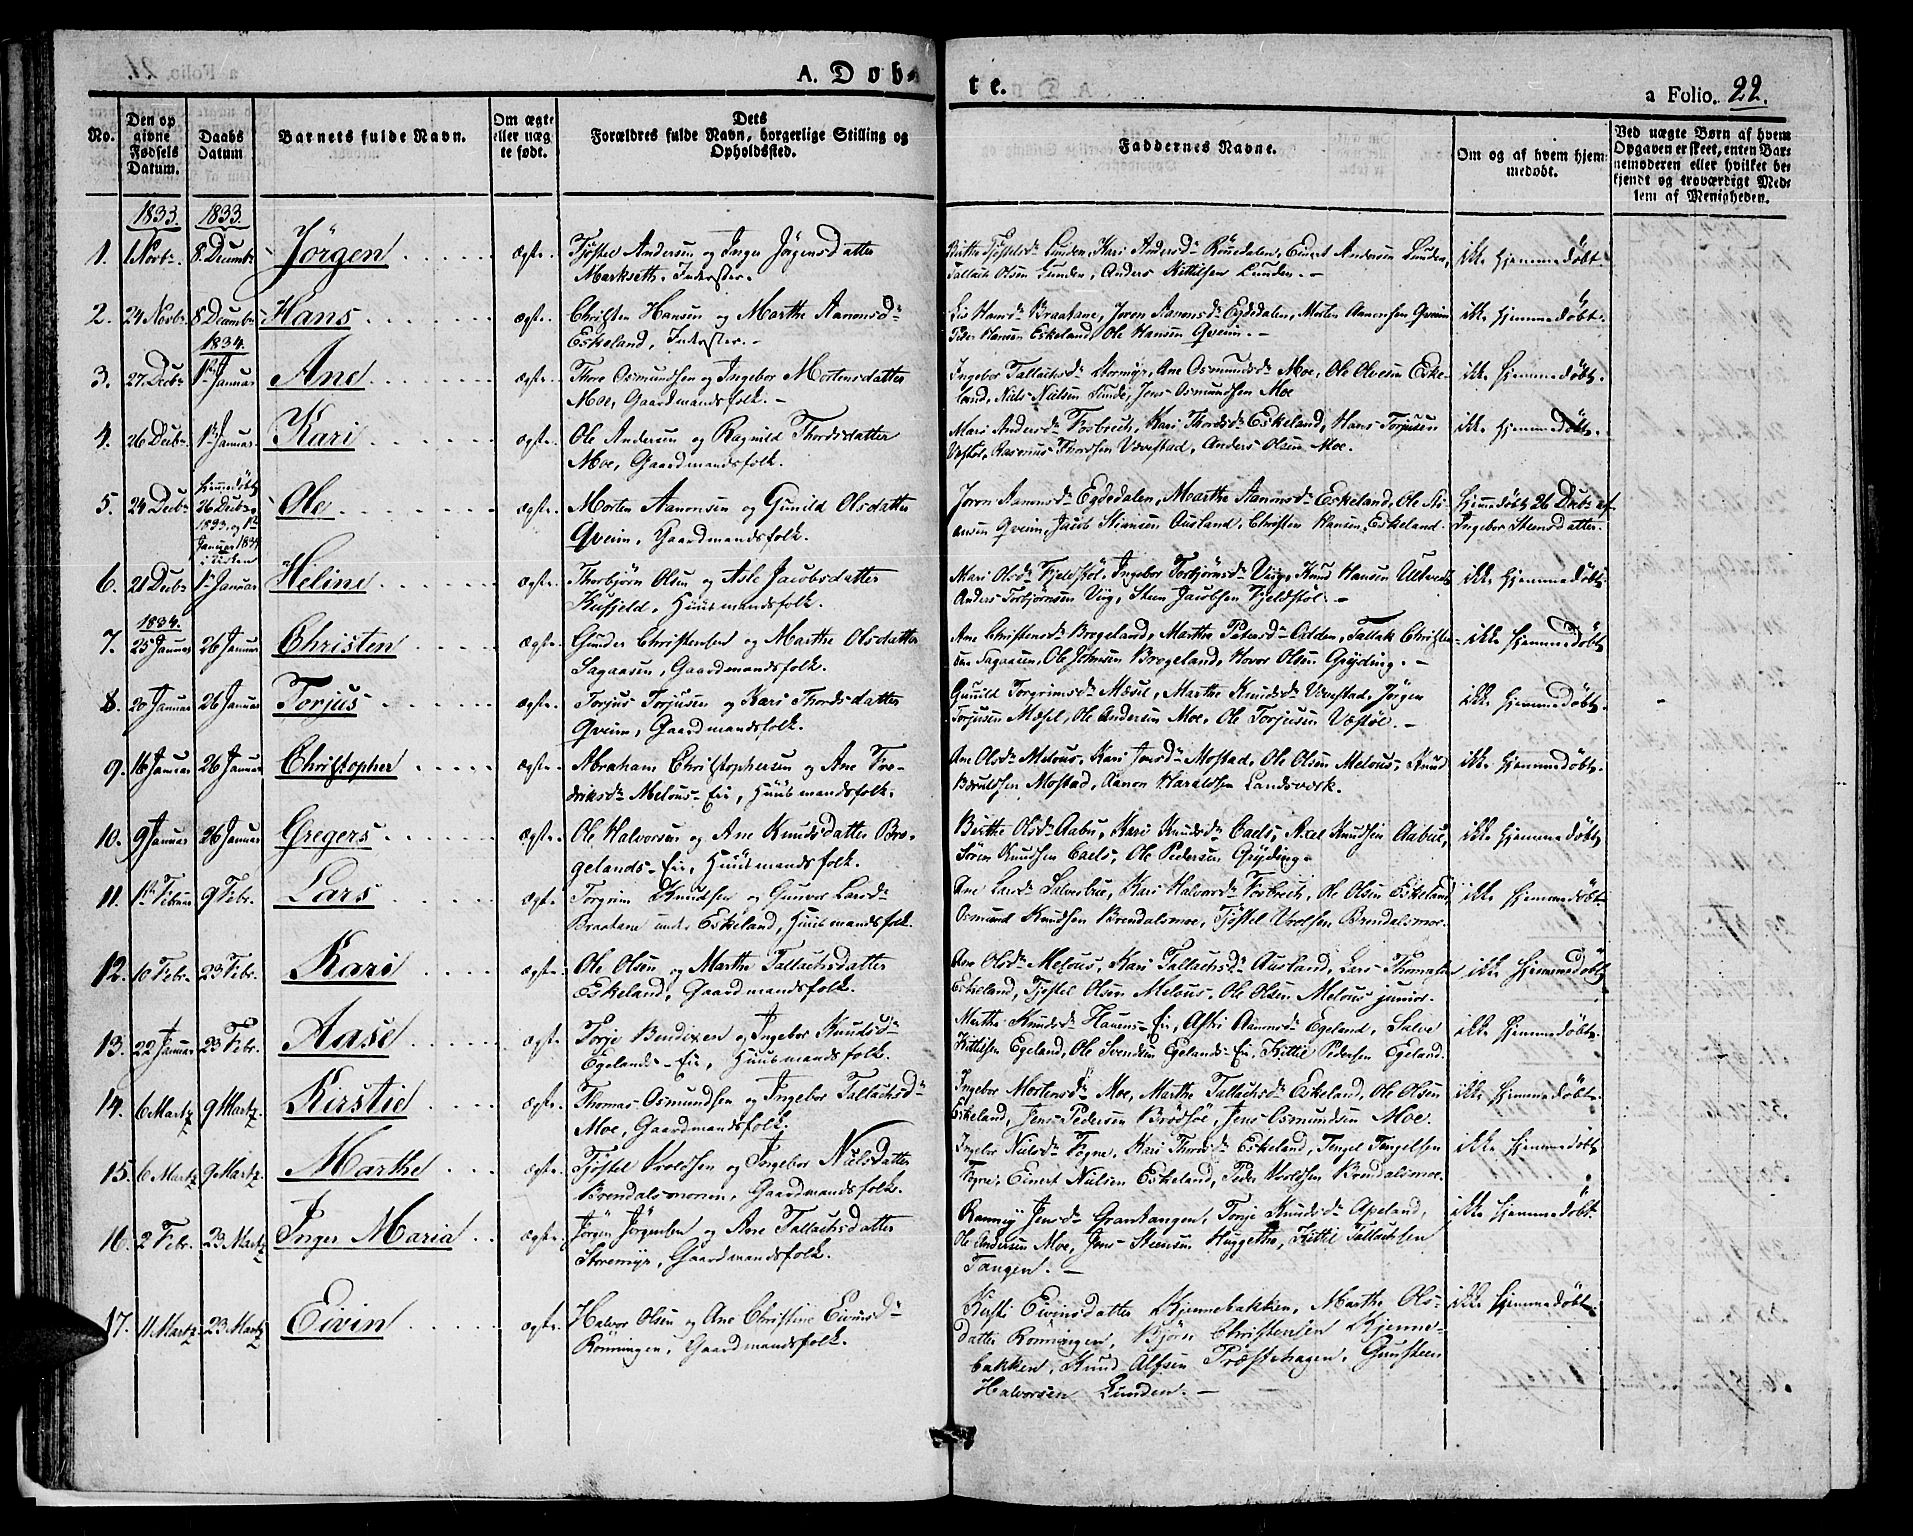 A. Døb-
te.
a Folio. 22.
No.
Den op
givne
Fødsels
Datum.
Daabs
Datum
Barnets fulde Navn.
Om ægte
eller uæg
te født.
Dets
Forældres fulde Navn, borgerlige Stilling og
Opholdssted.
Faddernes Navne.
Om og af hvem hjem-
medøbt.
Ved uægte Børn af hvem
Opgaven er skeet, enten Bar-
nemoderen eller hvilket be-
kjendt og troværdigt Med-
lem af Menigheden.
1833. 1833.
1. 1 Novbr. 8 Decembr. Jörgen ægte. Tjöstel Andersen og Inger Jörgensdatter
Markseth, Inderster.
Birthe Tjöstelsd. Lunden, Kari Andersd. Rönedalen, Einert Andersen Lunden,
Tallach Olsen Lunden, Anders Kittilsen Lunden.
ikke hjemmedøbt.
2. 24 Novbr. 8 Decembr. Hans ægte. Christen Hansen og Marthe Aanonsd.
Eskeland, Inderster.
Lis Hansd. Braatane, Joron Aanonsd. Egdedalen, Morten Aanonsen Qveim
Peder Hansen Eskeland, Ole Hansen Qveim.
ikke hjemmedøbt.
1834.
3. 27 Decbr. 1ste Januar Ane ægte. Thore Osmundsen og Ingebor Mortensdatter
Moe, Gaardmandsfolk.
Ingebor Tallachsd. Stormyr, Ane Osmundsd. Moe, Ole Olesen Eske-
land, Niels Nielsen Lunde, Jens Osmundsen Moe
ikke hjemmedøbt.
4. 26 Decbr. 1ste Januar Kari ægte. Ole Andersen og Ragnild Thordsdatter
Moe, Gaardmandsfolk.
Mari Andersd. Fosbrech, Kari Thordsd. Eskeland, Hans Torjusen
Vestöl, Rasmus Thordsen Vævestad, Anders Olsen Moe.
ikke hjemmedøbt.
5. 24 Decbr. hjemmedøbt
26 Decbr.
1833, og 1ste
Januar 1834
i Kirken
Ole ægte. Morten Aanonsen og Gunild Olsdatter
Qveim, Gaardmandsfolk.
Joron Aanonsd. Egdedalen, Marthe Aanonsd. Eskeland, Ole
Qveim, Jacob Steensen Ausland, Christen Hansen Eskeland.
hjemmedøbt 26 Decbr. af
Ingebor Steensdatter.
6. 21 Decbr. 1ste Januar Heline ægte. Thorbjörn Olsen og Asle Jacobsdatter
Kufjeld, Huusmandsfolk.
Mari Olsd. Fjeldstöl, Ingebor Torbjörnsd. Viig, Knud Hansen
Anders Torbjörnsen Viig, Steen Jacobsen Fjeldstöl.
ikke hjemmedøbt.
1834.
7. 25 Januar 26 Januar Christen ægte. Gunder Christensen og Marthe Olsdatter
Sagaasen, Gaardmandsfolk.
Ane Christensd. Brogeland, Marthe Pedersd. Odden, Tallak Christen-
sen Sagaasen, Ole Johnsen Brogeland, Hovor Olsen Gryding.
ikke hjemmedøbt
8. 20 Januar 26 Januar Torjus ægte. Torjus Torjusen og Kari Thordsdatter
Qveim, Gaardmandsfolk.
Gunild Torgrimsd. Mæsel, Marthe Knudsd. Vævestad, Jörgen
Torjusen Mæsel, Ole Andersen Moe, Ole Torjusen Væstöl.
ikke hjemmedøbt.
9. 16 Januar 26 Januar Christopher ægte. Abraham Christophersen og Ane Fre-
driksd. Melous-Eie, Huusmandsfolk.
Ane Olsd. Melous, Kari Jensd. Mostad, Ole Olsen Melous, Knud
Mostad, Aanon Haraldsen Landsverk.
ikke hjemmedøbt.
10. 9 Januar 26 Januar Gregers ægte. Ole Halvorsen og Ane Knudsdatter Bro-
gelands-Eie, Huusmandsfolk.
Birthe Olsd. Aabu, Kari Knudsd. Caels, Axel Knudsen Aabue,
Sören Knudsen Caels, Ole Pedersen Gryding.
ikke hjemmedøbt
11. 1ste Februar 9 Febr. Lars ægte. Torgrim Knudsen og Gunvor Larsd.
Braatane under Eskeland, Huusmandsfolk.
Ane Larsd. Salvesbue, Kari Halvorsd. Fosbrech, Ole Olsen Eskeland,
Osmund Knudsen Brendalsmoe, Tjöstel Vrolsen Brendalsmoe.
ikke hjemmedøbt
12. 10 Febr. 23 Febr. Kari ægte. Ole Olsen og Marthe Tallachsdatter
Eskeland, Gaardmandsfolk.
Ane Olsd. Melous, Kari Tallachsd. Ausland, Lars Thomasen
Eskeland, Tjöstel Olsen Melous, Ole Olsen Melous junior.
ikke hjemmedøbt
13. 22 Januar 23 Febr. Aase ægte. Torje Bendixen og Ingebor Knudsd.
Egelands-Eie, Huusmandsfolk.
Marthe Knudsd. Hauens-Eie, Aanonsd. Egeland, Salve
Kittilsen Egeland, Ole Svendsen Egelands-Eie, Kittil Pedersen Egeland.
ikke hjemmedøbt.
14. 6 Martz 9 Martz. Kirstie ægte. Thomas Osmundsen og Ingebor Tallachsd.
Moe, Gaardmandsfolk.
Ingebor Mortensd. Moe, Marthe Tallachsd. Eskeland, Ole Olsen
Eskeland, Jens Pedersen Brödsöe, Jens Osmundsen Moe.
ikke hjemmedøbt.
15. 6 Martz 9 Martz. Marthe ægte. Tjöstel Vroldsen og Ingebor Nielsdatter
Brendalsmoen, Gaardmandsfolk.
Ingebor Nielsd. Fogne, Kari Thordsd. Eskeland, Tengel Tengelsen
Fogne, Einert Nielsen Eskeland, Peder Vroldsen Brendalsmoe.
ikke hjemmedøbt
16. 2 Febr. 23 Martz Inger Maria ægte. Jörgen Jörgensen og Ane Tallachsdatter
Storemyr, Gaardmandsfolk.
Ranneiy Jensd. Grantangen, Torje Knudsd. Apeland,
Ole Andersen Moe, Jens Steensen Huggethe, Kittil Tallachsen
Tangen.
ikke hjemmedøbt.
17. 11 Martz. 23 Martz Eivin ægte. Halvor Olsen og Ane Christine Eivinsd.
Rönningen, Gaardmandsfolk.
Kirsti Eivinsdatter Kjennebakken, Marthe Ols-
datter Rönningen, Björn Christensen Kjenne-
bakken, Knud Alfsen Præstehagen, Gunsteen
Halvorsen Lunden.
ikke hjemmedøbt.